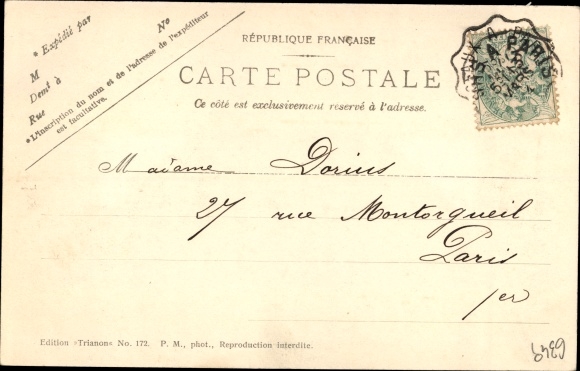 * Expédié par
M No
Demt à
Rue
* L'inscription du nom et de l'adresse de l'expéditeur
est facultative.
RÉPUBLIQUE FRANÇAISE
CARTE POSTALE
Ce côté est exclusivement reservé à l'adresse.
A PARIS
Madame Dorius
27 rue Montorgueil
Paris
1er
Edition »Trianon« No. 172. P. M., phot., Reproduction interdite.
6349